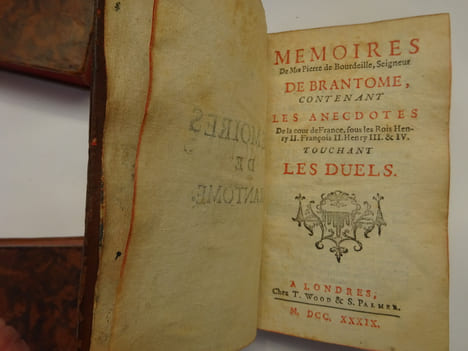 MEMOIRES
De Mre Pierre de Bourdeille, Seigneur
DE BRANTOME,
CONTENANT
LES ANECDOTES
De la cour de France, sous les Rois Hen-
ry II. François II. Henry III. & IV.
TOUCHANT
LES DUELS.
A LONDRES,
Chez T. WOOD & S. PALMER.
M. DCC. XXXIX.